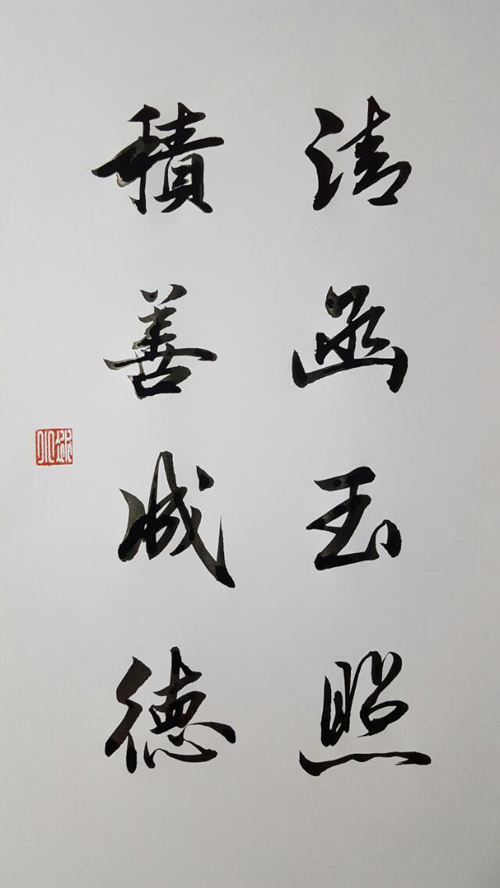 清函玉照
積善成德